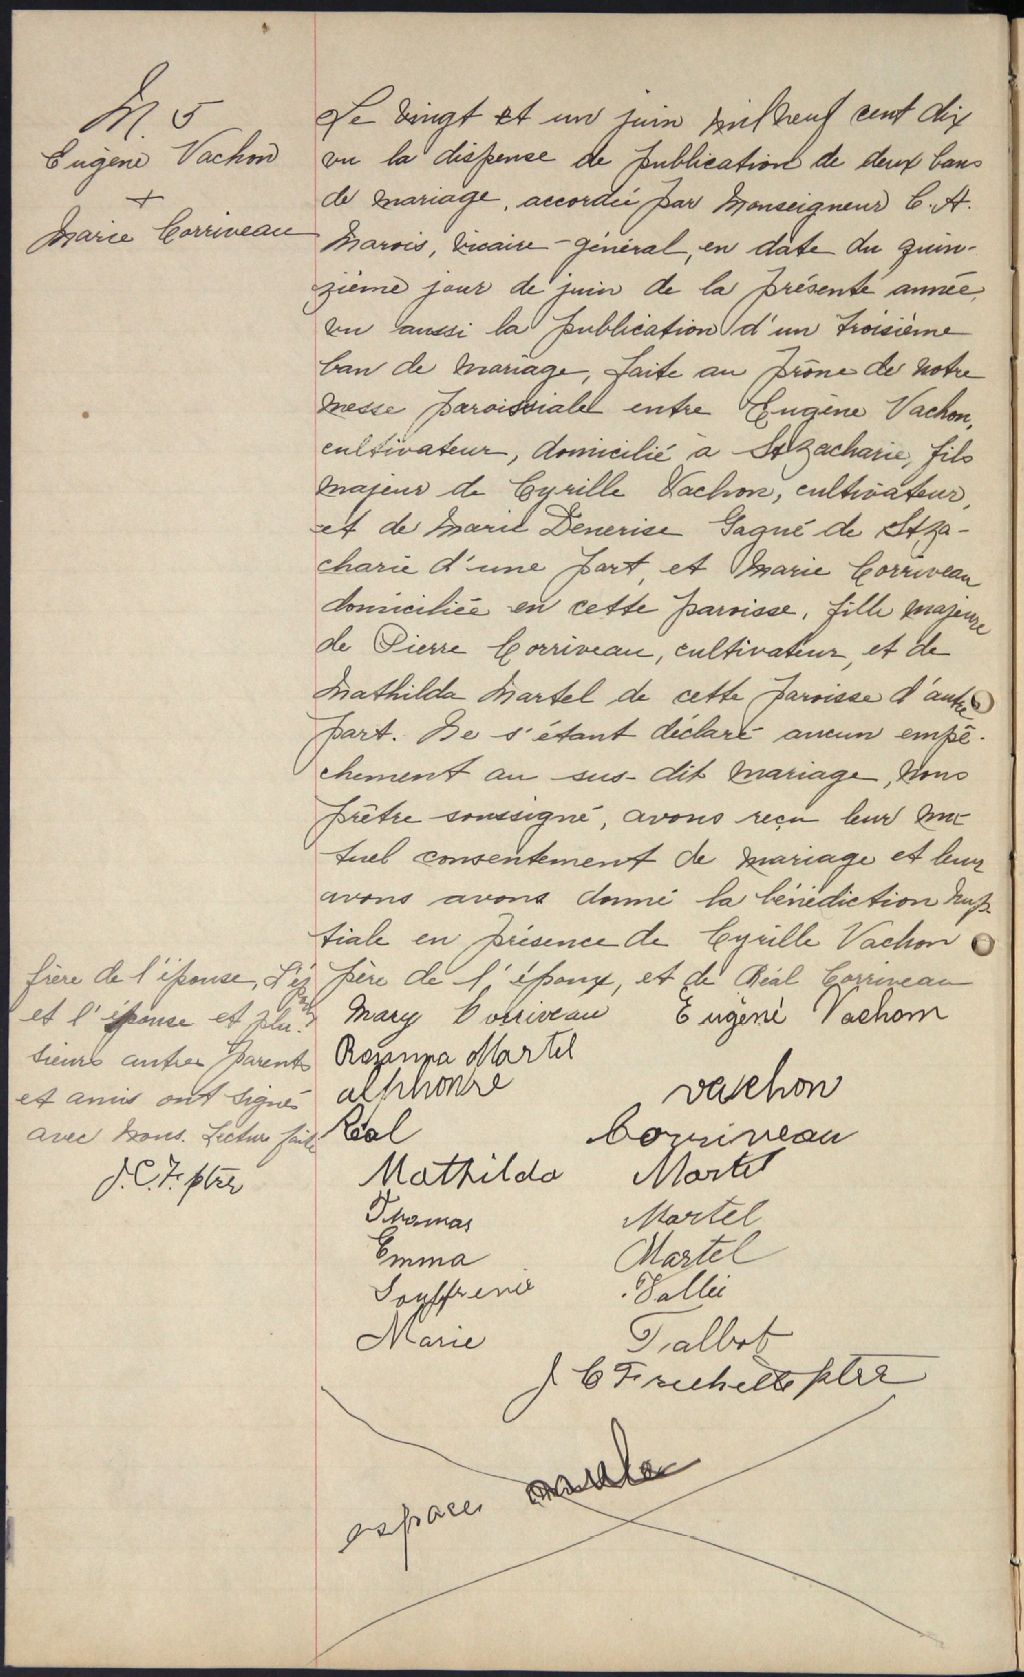 M. 5
Eugène Vachon
+
Marie Corriveau
Le vingt et un juin mil neuf cent dix
vu la dispense de publication de deux bans
de mariage, accordée par Monseigneur C. A.
Marois, vicaire-général, en date du quin-
zième jour de juin de la présente année,
vu aussi la publication d'un troisième
ban de mariage, faite au prône de notre
messe paroissiale entre Eugène Vachon,
cultivateur, domicilié à St Zacharie, fils
majeur de Cyrille Vachon, cultivateur,
et de Marie Denerise Gagné de St Za-
charie d'une part, et Marie Corriveau
domiciliée en cette paroisse, fille majeure
de Pierre Corriveau, cultivateur, et de
Mathilda Martel de cette paroisse d'autre
part. Ne s'étant déclaré aucun empê-
chement au sus-dit mariage, nous
prêtre soussigné, avons reçu leur mu-
tuel consentement de mariage et leur
avons avons donné la bénédiction nup-
tiale en présence de Cyrille Vachon
père de l'époux, et de Réal Corriveau
frère de l'épouse. L'époux
et l'épouse et plu-
sieurs autres parents
et amis ont signés
avec nous. Lecture faite
J.C.F. ptre
Mary Corriveau Eugéné Vachom
Rosanna Martel
alphonse vachon
Réal Corriveau
Mathilda Martel
Thomas Martel
Emma Martel
Vallée
Marie Talbot
J C Frechette ptre
espace